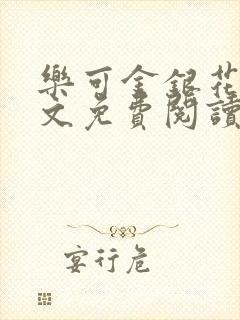 樂可金銀花
文免費閱讀
宴行危